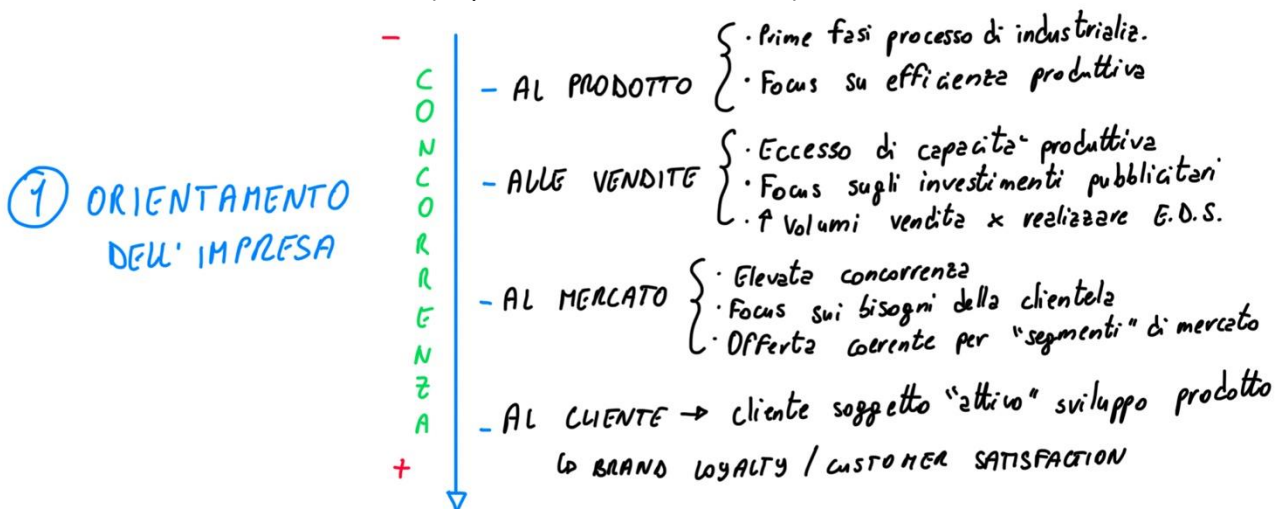 ① ORIENTAMENTO
DELL' IMPRESA
-
CONCORRENZA
+
- AL PRODOTTO
· Prime fasi processo di industrializ.
· Focus su efficienza produttiva
- ALLE VENDITE
· Eccesso di capacita' produttiva
· Focus sugli investimenti pubblicitari
· ↑ Volumi vendita x realizzare E.D.S.
- AL MERCATO
· Elevata concorrenza
· Focus sui bisogni della clientela
· Offerta coerente per "segmenti" di mercato
- AL CLIENTE → cliente soggetto "attivo" sviluppo prodotto
↳ BRAND LOYALTY / CUSTOMER SATISFACTION